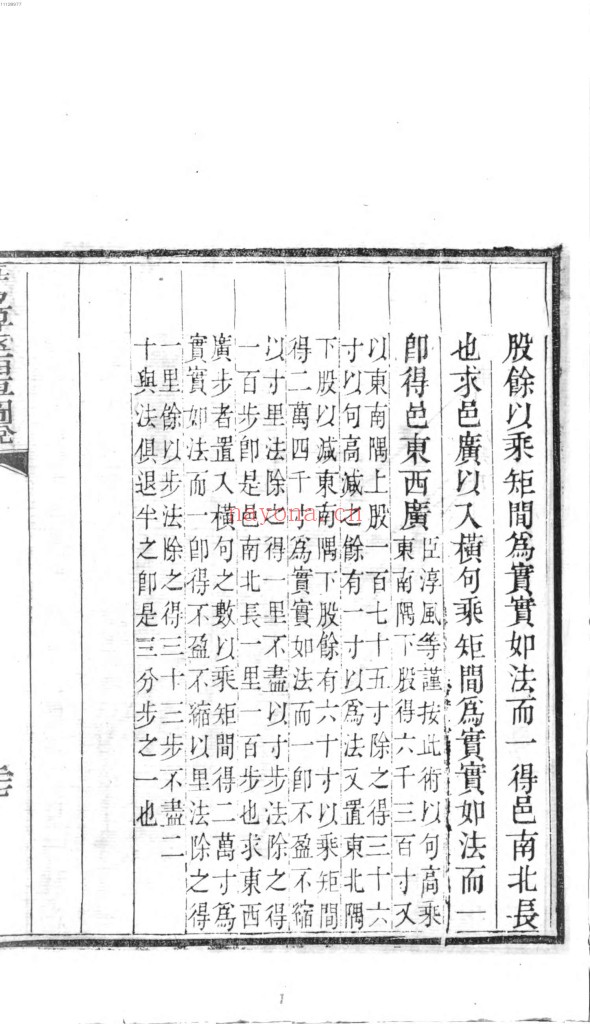 股餘以乘矩間爲實實如法而一得邑南北長
也求邑廣以入橫句乘矩間爲實實如法而一
卽得邑東西廣
臣淳風等謹按此術以句高乘
東南隅下股得六千三百寸又
以東南隅上股一百七十五寸除之得三十六
寸以句高減之餘有一寸以爲法又置東北隅
下股以減東南隅下股餘有六十寸以乘矩間
得二萬四千寸爲實實如法而一卽不盈不縮
以寸里法除之得一里不盡以寸步法除之得
一百步卽是邑南北長一里一百步也求東西
廣步者置入橫句之數以乘矩間得二萬寸爲
實實如法而一卽得不盈不縮以里法除之得
一里餘以步法除之得三十三步不盡二
十與法俱退半之卽是三分步之一也
nayona.cn